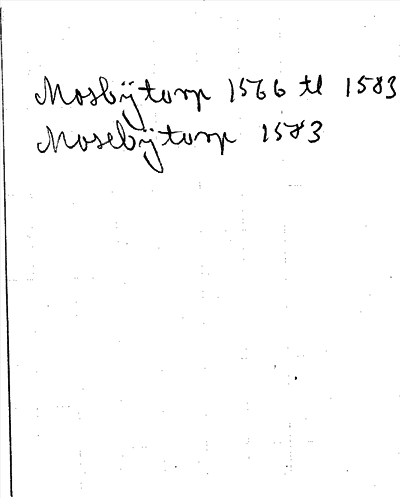 Mosbÿtorp 1566 tl 1583
Mosebÿtorp 1583